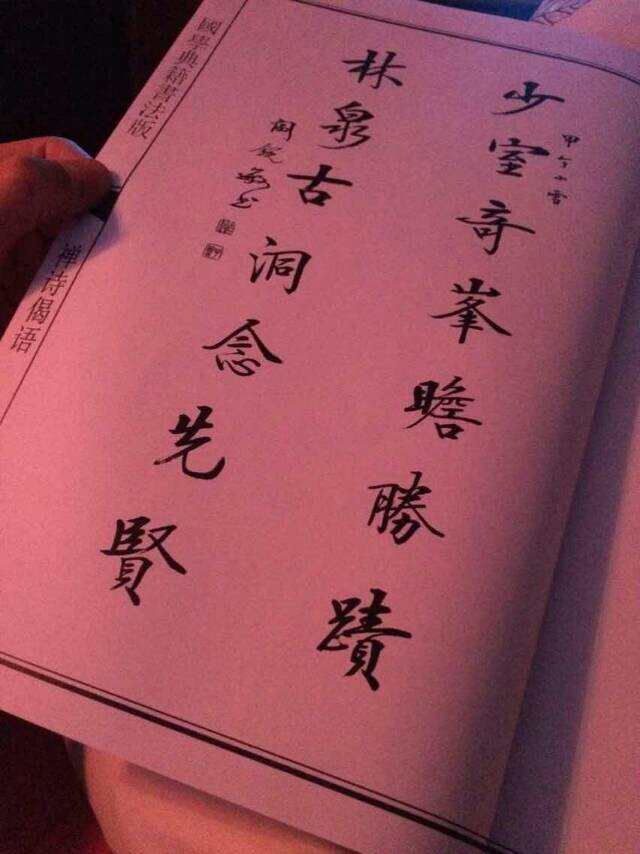 少室奇峯瞻勝蹟
甲午小雪
林泉古洞念先賢
國學典籍書法版
禅诗偈语